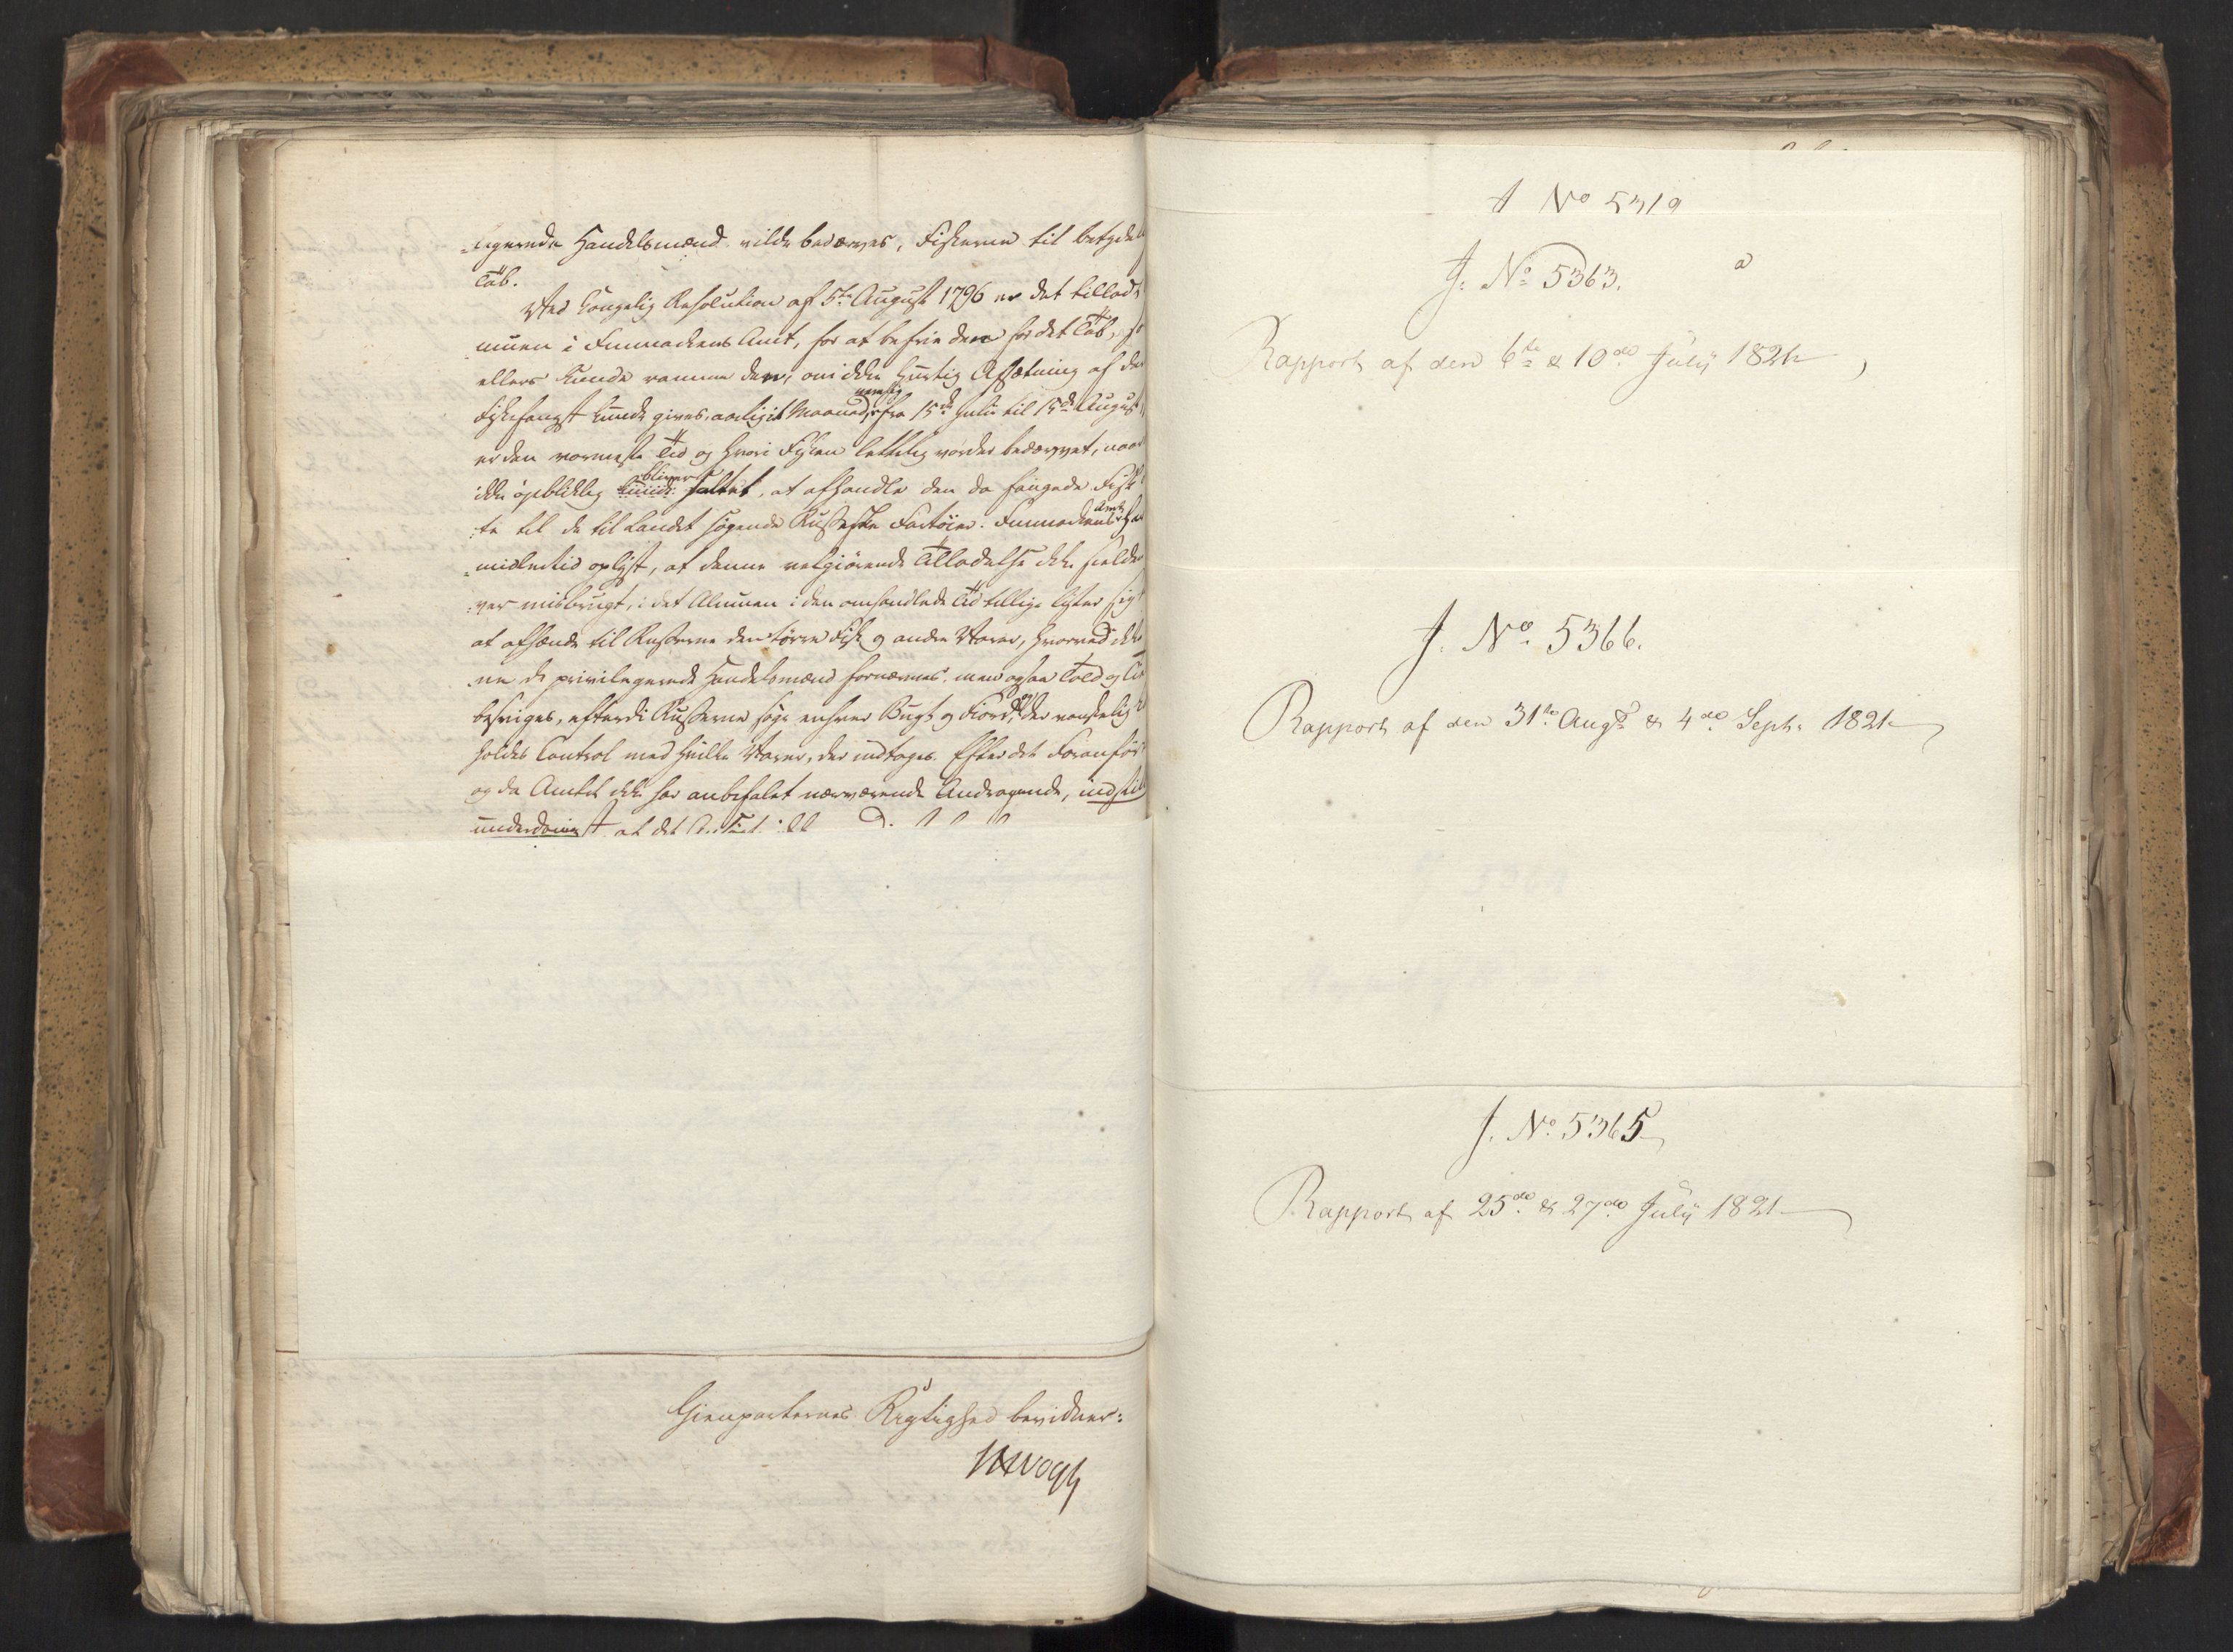 -legerede Handelsmænd vilde bedærves, Fiskerne til betyde
Tab.
Ved Kongelig Resolution af 5te August 1796 er det tilladt
-muen i Finmarkens Amt, for at befrie den for det Tab, so
ellers kunde ramme den, om ikke hurtig Afsætning af de
Fiskefangst kunde gives, aarligt i Maaned nemlig fra 15de Julii til 15de August
er den varmeste Tid og hvori Fisken letteligt vorder bedærvet, naar
ikke øpeblikkelig kunde bliver saltet, at afhandle den da fangede Fisk
-te til de til Landet søgende Russiske Fartøier. Finmarkens Amt har
-midlertid oplyst, at denne velgiørende Tilladelse ikke sielden
-ver misbrugt, i det Almuen i den omhandlede Tid tillige lister sig
at afhænde til Russerne den tørre Fisk og andre Varer, hvorved ikke
-ne de privilegerede Handelsmænd fornærmes, men ogsaa Told og Ti
besviges, efterdi Russerne søge enhver Bugt og Fiord, og der vanskelig
holdes Control med hvilke Varer, der indtages. Efter det Foranfør
og da Amtet ikke har anbefalet nærværende Andragende, indstil
underdanigst at det
Gienparternes Rigtighed bevidner:
Vogt
J No 5319
J: No 5363.
Rapport af den 6te & 10de July 1821
J. No. 5366.
Rapport af den 31te Augt & 4de Sept: 1821
J. No. 5365
Rapport af 25de & 27de July 1821